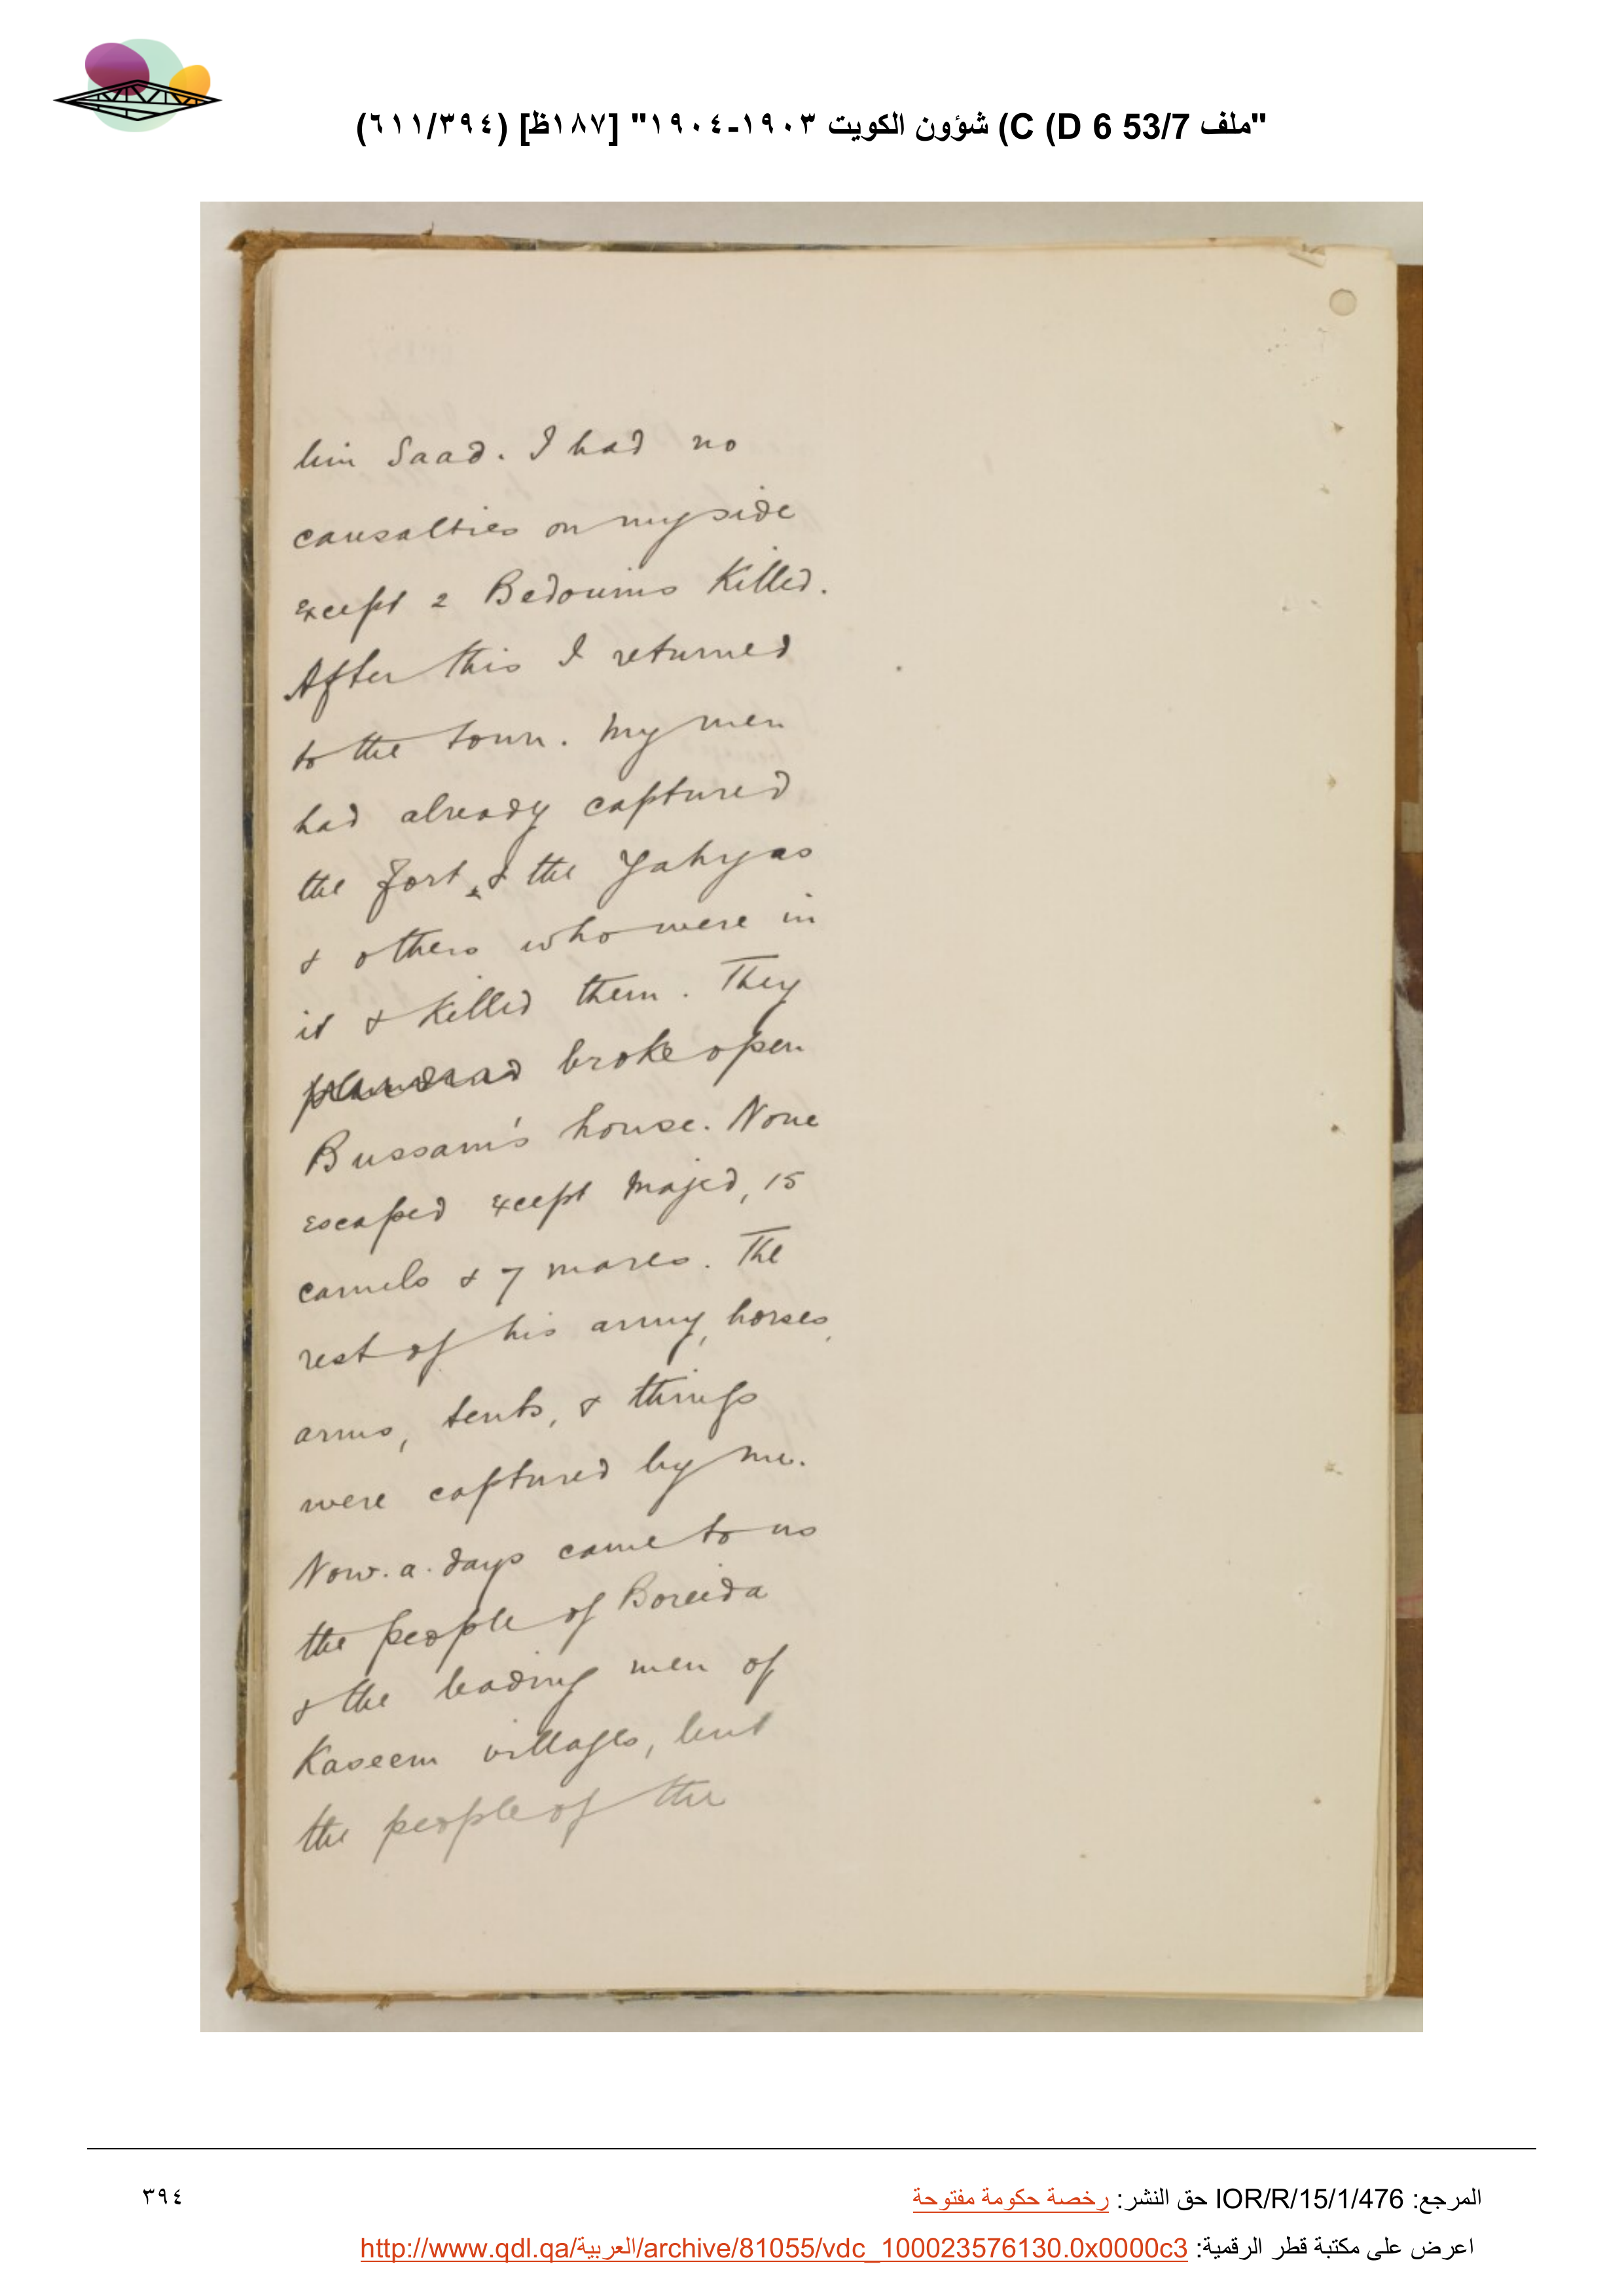 "ملف 53/7 D 6) C) شؤون الكويت ١٩٠٣-١٩٠٤" [١٨٧ظ] (٣٩٤/٦١١)
bin Saad. I had no
causalties on my side
except 2 Bedouins Killed.
After this I returned
to the town. My men
had already captured
the fort, & the Yahyas
& others who were in
it & Killed them. They
broke open
Bussam's house. None
escaped except Majed, 15
camels & 7 mares. The
rest of his army, horses,
arms, tents, & things
were captured by me.
Now.a.days came to us
the people of Boreida
& the leading men of
Kaseem villages, but
the people of the
المرجع: IOR/R/15/1/476 حق النشر: رخصة حكومة مفتوحة
٣٩٤
اعرض على مكتبة قطر الرقمية: http://www.qdl.qa/العربية/archive/81055/vdc_100023576130.0x0000c3